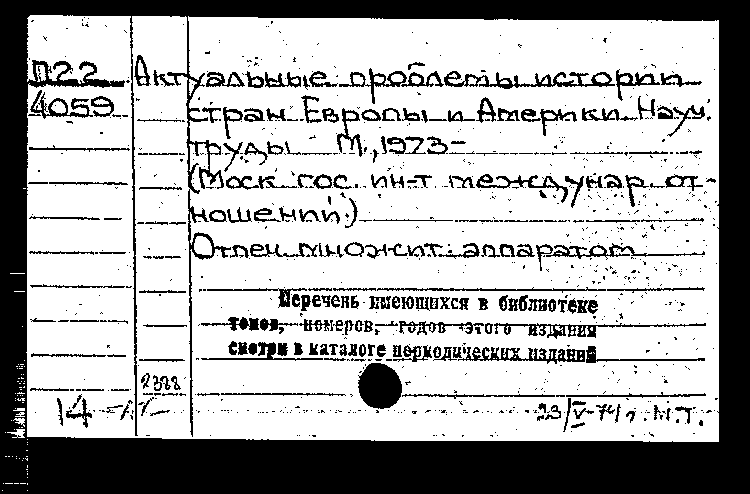 П22
4059
Актуальные проблемы истории
стран Европы и Америки. Науч.
труды М., 1973-
(Моск гос. ин-т междунар. от-
ношений.)
Отпеч. множит. аппаратом
Перечень имеющихся в библиотеке
томов, номеров, годов этого издания
смотри в каталоге периодических изданий
2388
14
23/V-74 г. М.Т.